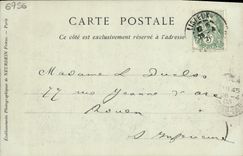 6956
CARTE POSTALE
Ce côté est exclusivement réservé à l'adresse
Madame L Duclos
77 rue Jeanne d'arc
Rouen
S. Inférieure
Etablissements Photographiques de NEURDEIN Frères. — Paris